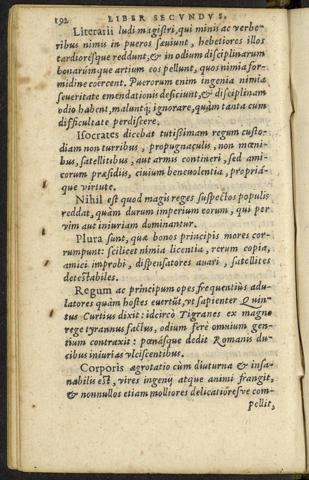 192 LIBER SECVNDVS.
Literarii ludi magistri, qui minis ac verbe
ribus nimis in pueros sæuiunt, hebetiores illos
tardioresque reddunt, & in odium disciplinarum
bonarumque artium eos pellunt, quos nimia for-
midine coercent. Puerorum enim ingenia nimia
seueritate emendationis deficiunt, & disciplinam
odio habent, maluntq; ignorare, quàm tanta cum
difficultate perdiscere.
Isocrates dicebat tutissimam regum custo-
diam non turribus, propugnaculis, non mœni
bus, satellitibus, aut armis contineri, sed ami-
corum præsidiis, ciuium beneuolentia, propriá-
que virtute.
Nihil est quod magis reges suspectos populis
reddat, quàm durum imperium eorum, qui per
vim aut iniuriam dominantur.
Plura sunt, quæ bonos principis mores cor-
rumpunt: scilicet nimia licentia, rerum copia,
amici improbi, dispensatores auari, satellites
detestabiles.
Regum ac principum opes frequentiùs adu-
latores quàm hostes euertũt, vt sapienter Quin-
tus Curtius dixit: idcircò Tigranes ex magno
rege tyrannus factus, odium ferè omnium gen-
tium contraxit: pœnásque dedit Romanis du-
cibus iniurias vlciscentibus.
Corporis ægrotatio cùm diuturna & insa-
nabilis est, vires ingenij atque animi frangit,
& nonnullos etiam molliores delicatiorésve com-
pellit,